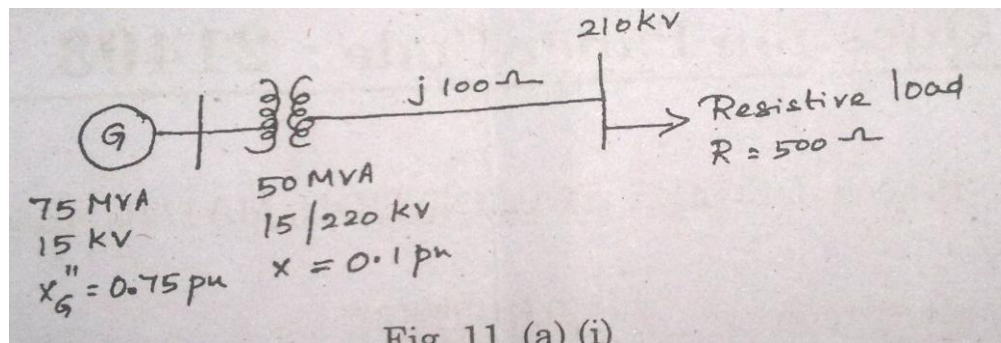 210kV
j 100 Ω
Resistive load
R = 500 Ω
G
75 MVA
15 kV
X"G = 0.75 pu
50 MVA
15/220 kV
x = 0.1 pu
Fig. 11 (a) (i)